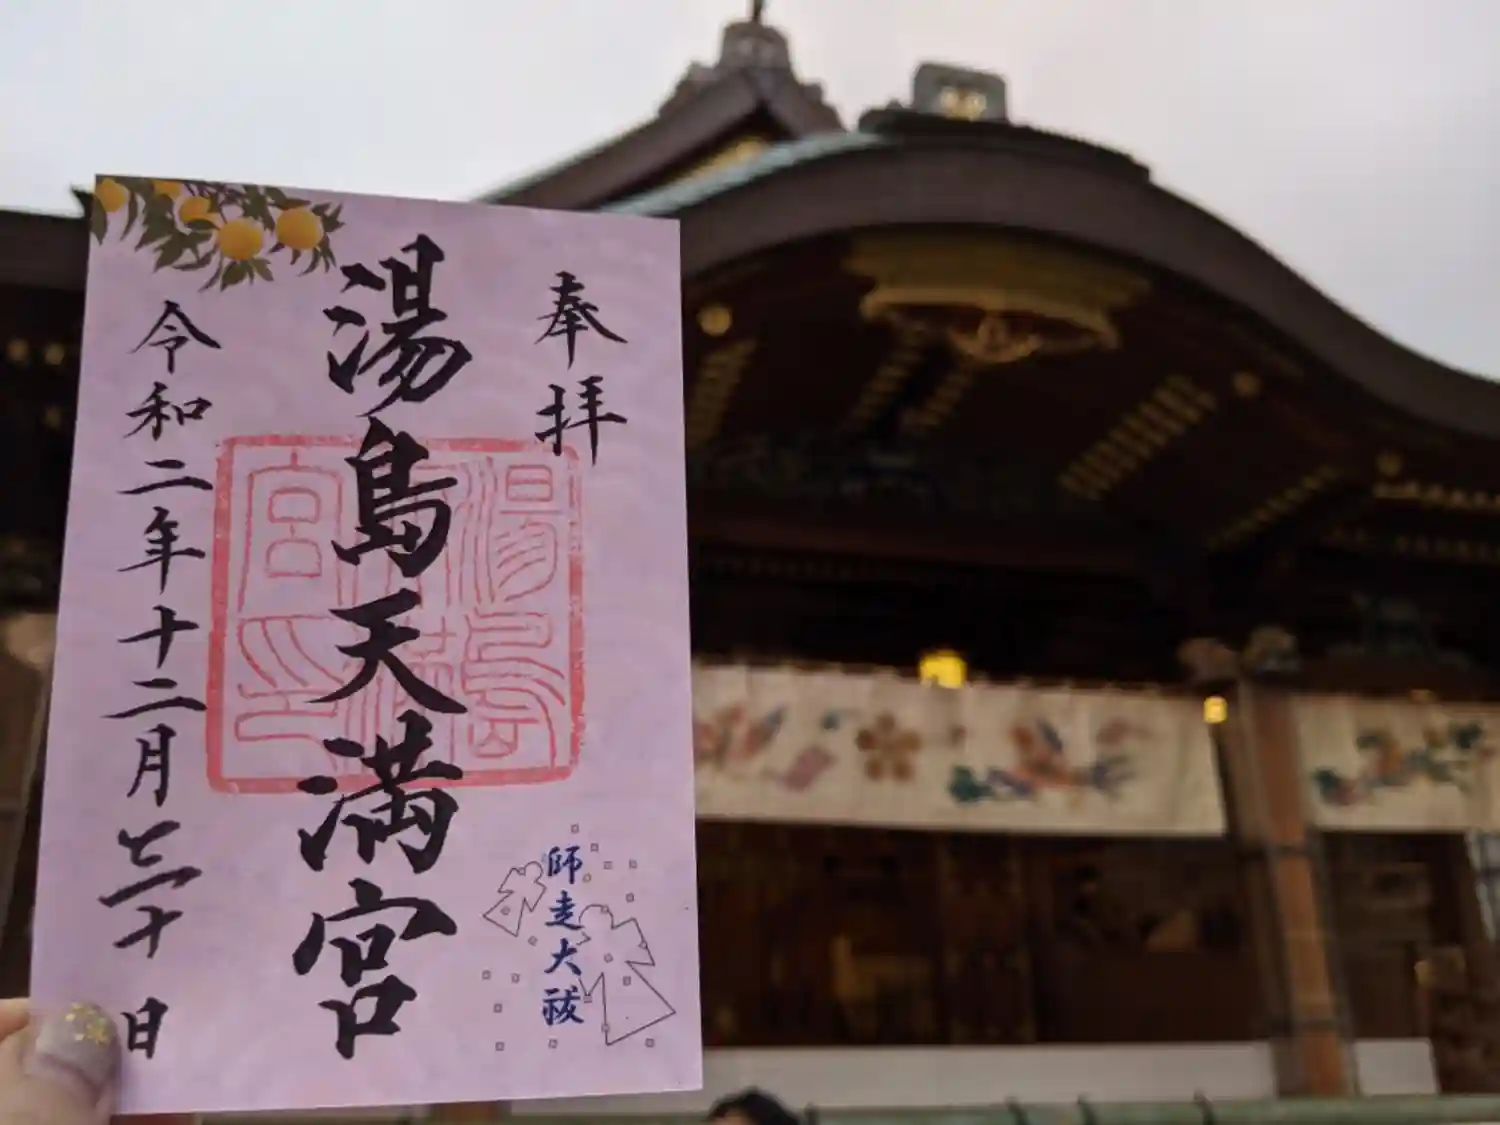 奉拝
湯島天満宮
湯島天満宮印
師走大祓
令和二年十二月三十日